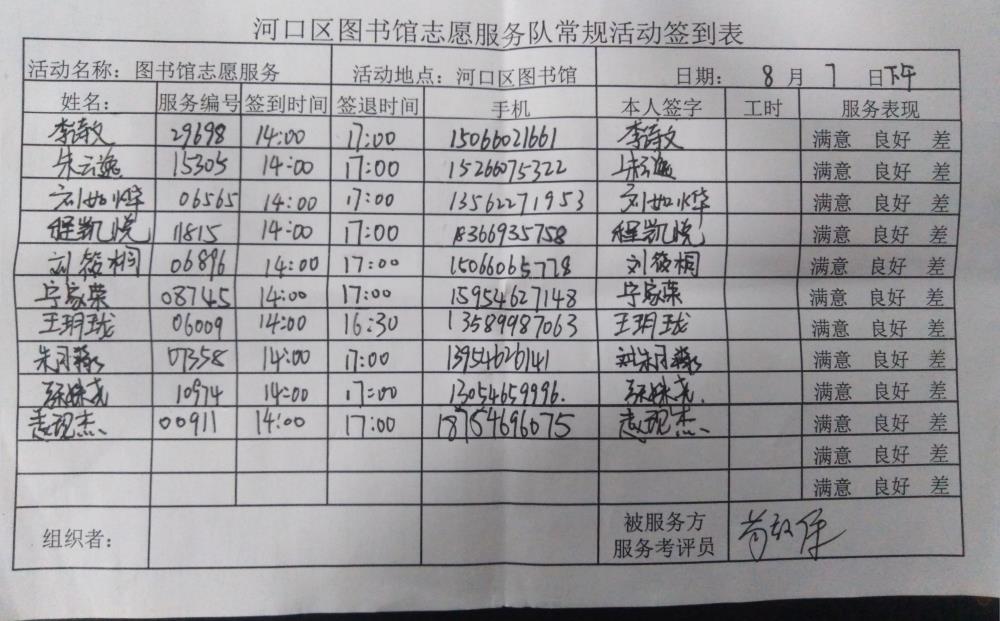 河口区图书馆志愿服务队常规活动签到表
活动名称：图书馆志愿服务 活动地点：河口区图书馆 日期： 8 月 7 日下午
姓名： 服务编号 签到时间 签退时间 手机 本人签字 工时 服务表现
29698 14:00 17:00 15066021661 满意 良好 差
朱云逸 15305 14:00 17:00 15266075322 朱云逸 满意 良好 差
刘如烨 06565 14:00 17:00 13562271953 刘如烨 满意 良好 差
程凯悦 11815 14:00 17:00 18366935758 程凯悦 满意 良好 差
刘筱桐 06896 14:00 17:00 15066065778 刘筱桐 满意 良好 差
宁家荣 08745 14:00 17:00 15954627148 宁家荣 满意 良好 差
王玥珑 06009 14:00 16:30 13589987063 王玥珑 满意 良好 差
07358 14:00 17:00 13954626141 满意 良好 差
10974 14:00 17:00 13054659996. 满意 良好 差
00911 14:00 17:00 18754696075 满意 良好 差
满意 良好 差
满意 良好 差
组织者： 被服务方
服务考评员